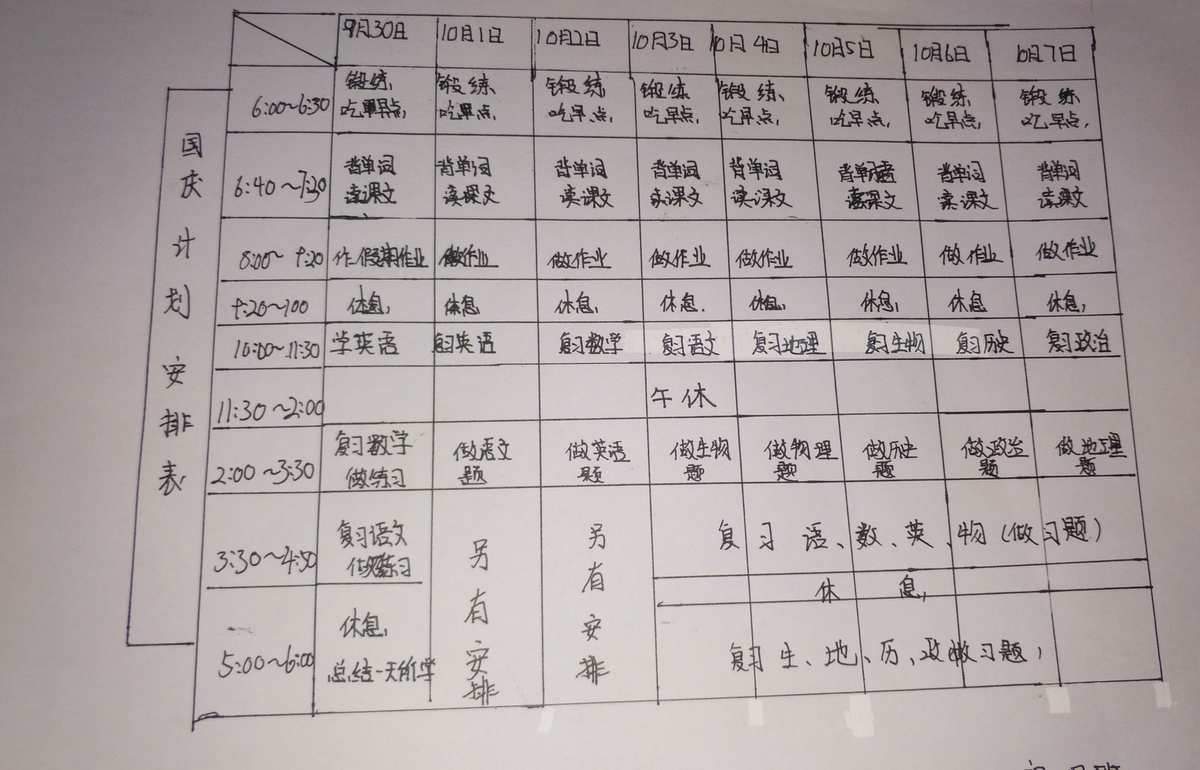 国庆计划安排表
9月30日 10月1日 10月2日 10月3日 10月4日 10月5日 10月6日 10月7日
6:00~6:30 锻练, 锻练, 锻练, 锻练, 锻练、 锻练, 锻练, 锻练,
吃早点, 吃早点, 吃早点, 吃早点, 吃早点, 吃早点, 吃早点, 吃早点,
6:40~7:20 背单词 背单词 背单词 背单词 背单词 背单词 背单词 背单词
读课文 读课文 读课文 读课文 读课文 读课文 读课文 读课文
8:00~9:20 作假期作业 做作业 做作业 做作业 做作业 做作业 做作业 做作业
9:20~10:00 休息, 休息 休息, 休息. 休息, 休息, 休息 休息,
10:00~11:30 学英语 复习英语 复习数学 复习语文 复习地理 复习生物 复习历史 复习政治
11:30~2:00 午休
2:00~3:30 复习数学 做语文 做英语 做生物 做物理 做历史 做政治 做地理
做练习 题 题 题 题 题 题 题
3:30~4:50 复习语文 另有安排 另有安排 复习语、数、英、物(做习题)
做练习
休息,
5:00~6:00 休息, 复习生、地、历、政做习题,
总结一天所学